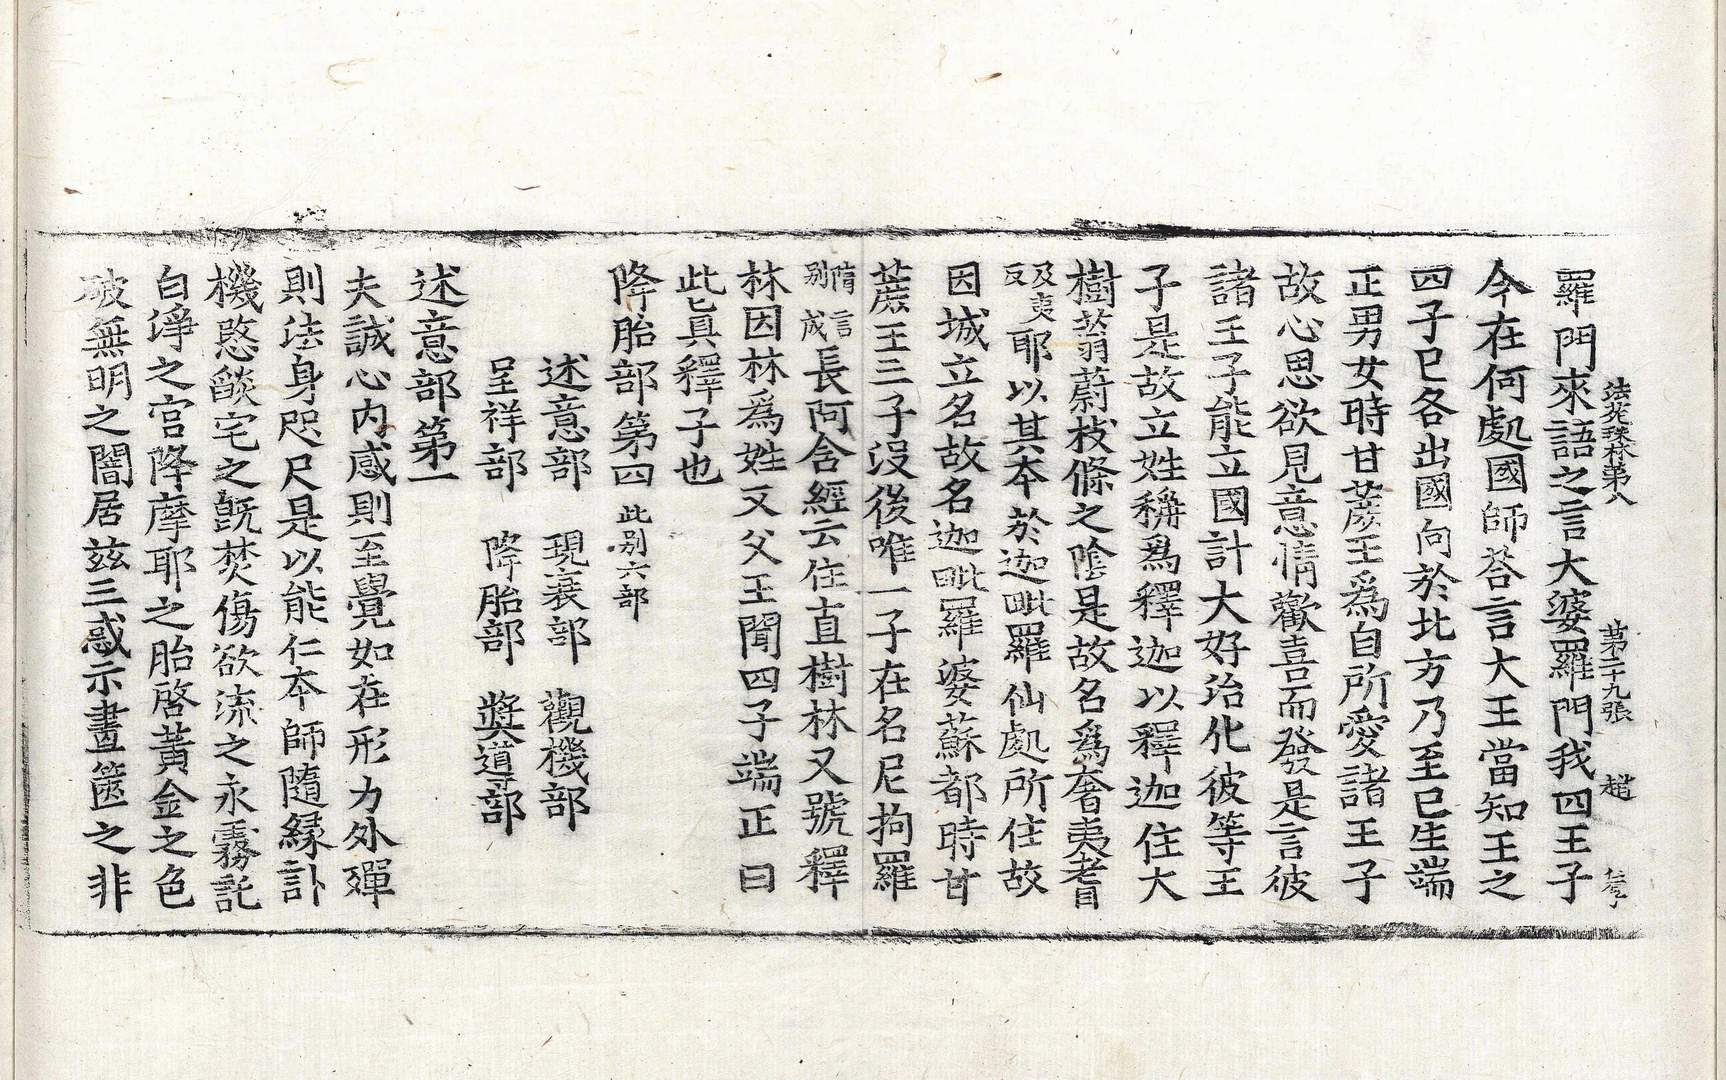 法苑珠林第八 第二十九張 趙
羅門來語之言大婆羅門我四王子
今在何處國師荅言大王當知王之
四子已各出國向於北方乃至已生端
正男女時甘蔗王爲自所愛諸王子
故心思欲見意情歡喜而發是言彼
諸王子能立國計大好治化彼等王
子是故立姓稱爲釋迦以釋迦住大
樹蓊蔚枝條之陰是故名爲奢夷耆
及夷反耶以其本於迦毗羅仙處所住故
因城立名故名迦毗羅婆蘇都時甘
蔗王三子没後唯一子在名尼拘羅
隋言別成長阿含經云住直樹林又號釋
林因林爲姓又父王聞四子端正曰
此眞釋子也
降胎部第四 此别六部
述意部 現衰部 觀機部
呈祥部 降胎部 奬導部
述意部第一
夫誠心内感則至覺如在形力外殫
則法身咫尺是以能仁本師隨緣訃
機愍燄宅之旣焚傷欲流之永騖託
白淨之宮降摩耶之胎啓黃金之色
破無明之闇居兹三惑示畫篋之非